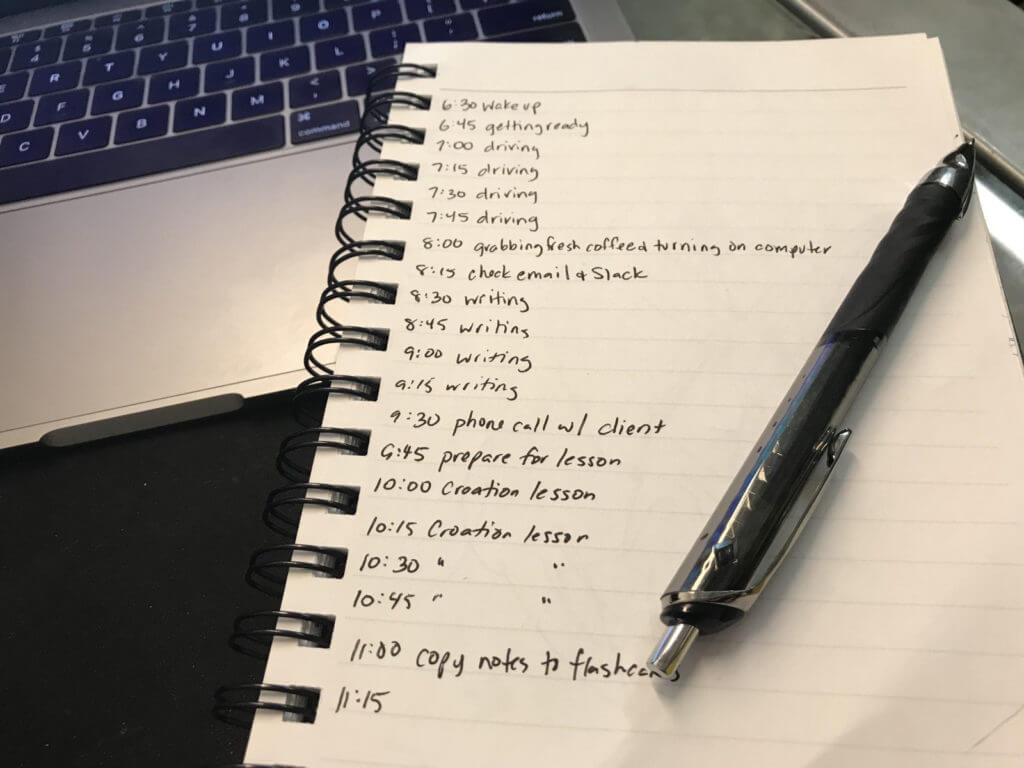 return
O P
Y U I
R T
J K L
D F G H
C V B N M
command
6:30 wake up
6:45 getting ready
7:00 driving
7:15 driving
7:30 driving
7:45 driving
8:00 grabbing fresh coffee & turning on computer
8:15 check email & Slack
8:30 writing
8:45 writing
9:00 writing
9:15 writing
9:30 phone call w/ client
9:45 prepare for lesson
10:00 Croation lesson
10:15 Croation lesson
10:30 " "
10:45 " "
11:00 copy notes to
11:15